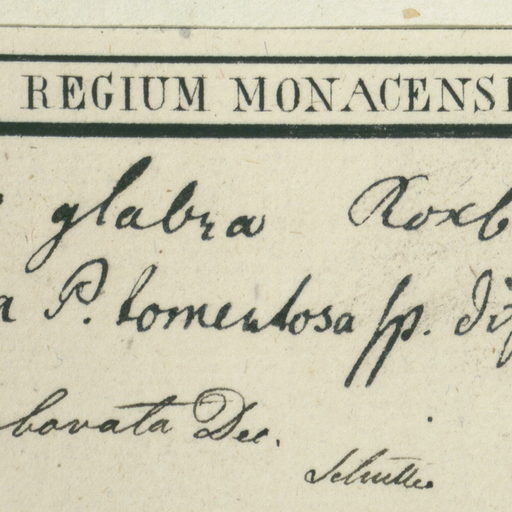 REGIUM MONACENS
glabra Roxb
a P. tomentosa sp. dif
bovata Dec.